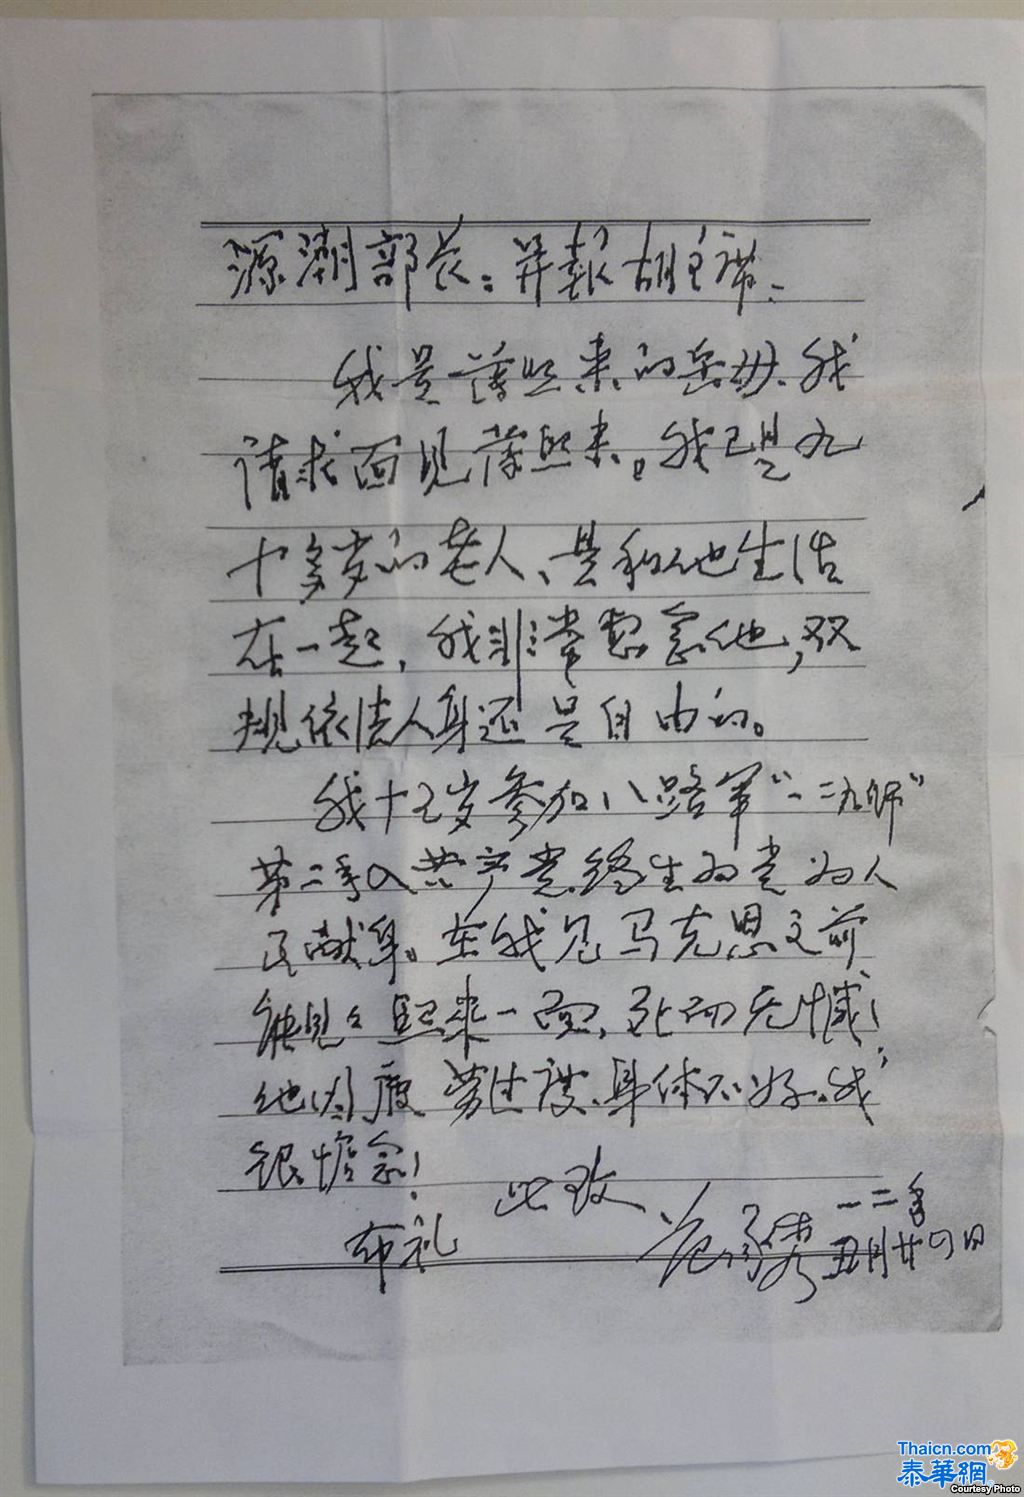 源潮部长：并报胡主席：
我是薄熙来的岳母、我
请求面见薄熙来。我已是九
十多岁的老人、是和他生活
在一起，我非常想念他，双
规依法人身还是自由的。
我十五岁参加八路军“一二九师”
第二年入共产党，终生为党为人
民献身。在我见马克思之前
能见见熙来一面，死而无憾！
他因劳过度、身体不好，我
很惦念！
此致
布礼
范承秀
一二年
五月廿四日
Thaicn.com
泰華網
Courtesy Photo